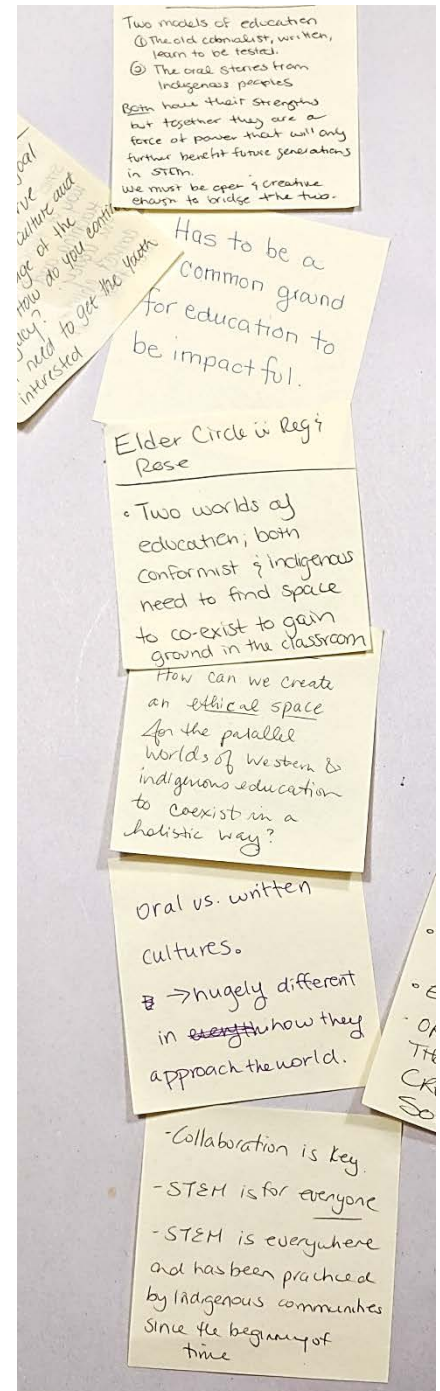 Two models of education
① The old colonialist, written,
learn to be tested.
② The oral stories from
Indigenous peoples
Both have their strengths
but together they are a
force of power that will only
further benefit future generations
in STEM.
We must be open & creative
enough to bridge the two.
culture and
age of the
How do you contin
need to get the youth
interested
Has to be a
common ground
for education to
be impactful.
Elder Circle w Reg &
Rose
• Two worlds of
education; both
conformist & indigenous
need to find space
to co-exist to gain
ground in the classroom
How can we create
an ethical space
for the parallel
worlds of Western &
indigenous education
to coexist in a
holistic way?
oral vs. written
cultures.
→ hugely different
in how they
approach the world.
- Collaboration is key.
- STEM is for everyone
- STEM is everywhere
and has been practiced
by Indigenous communities
since the beginning of
time